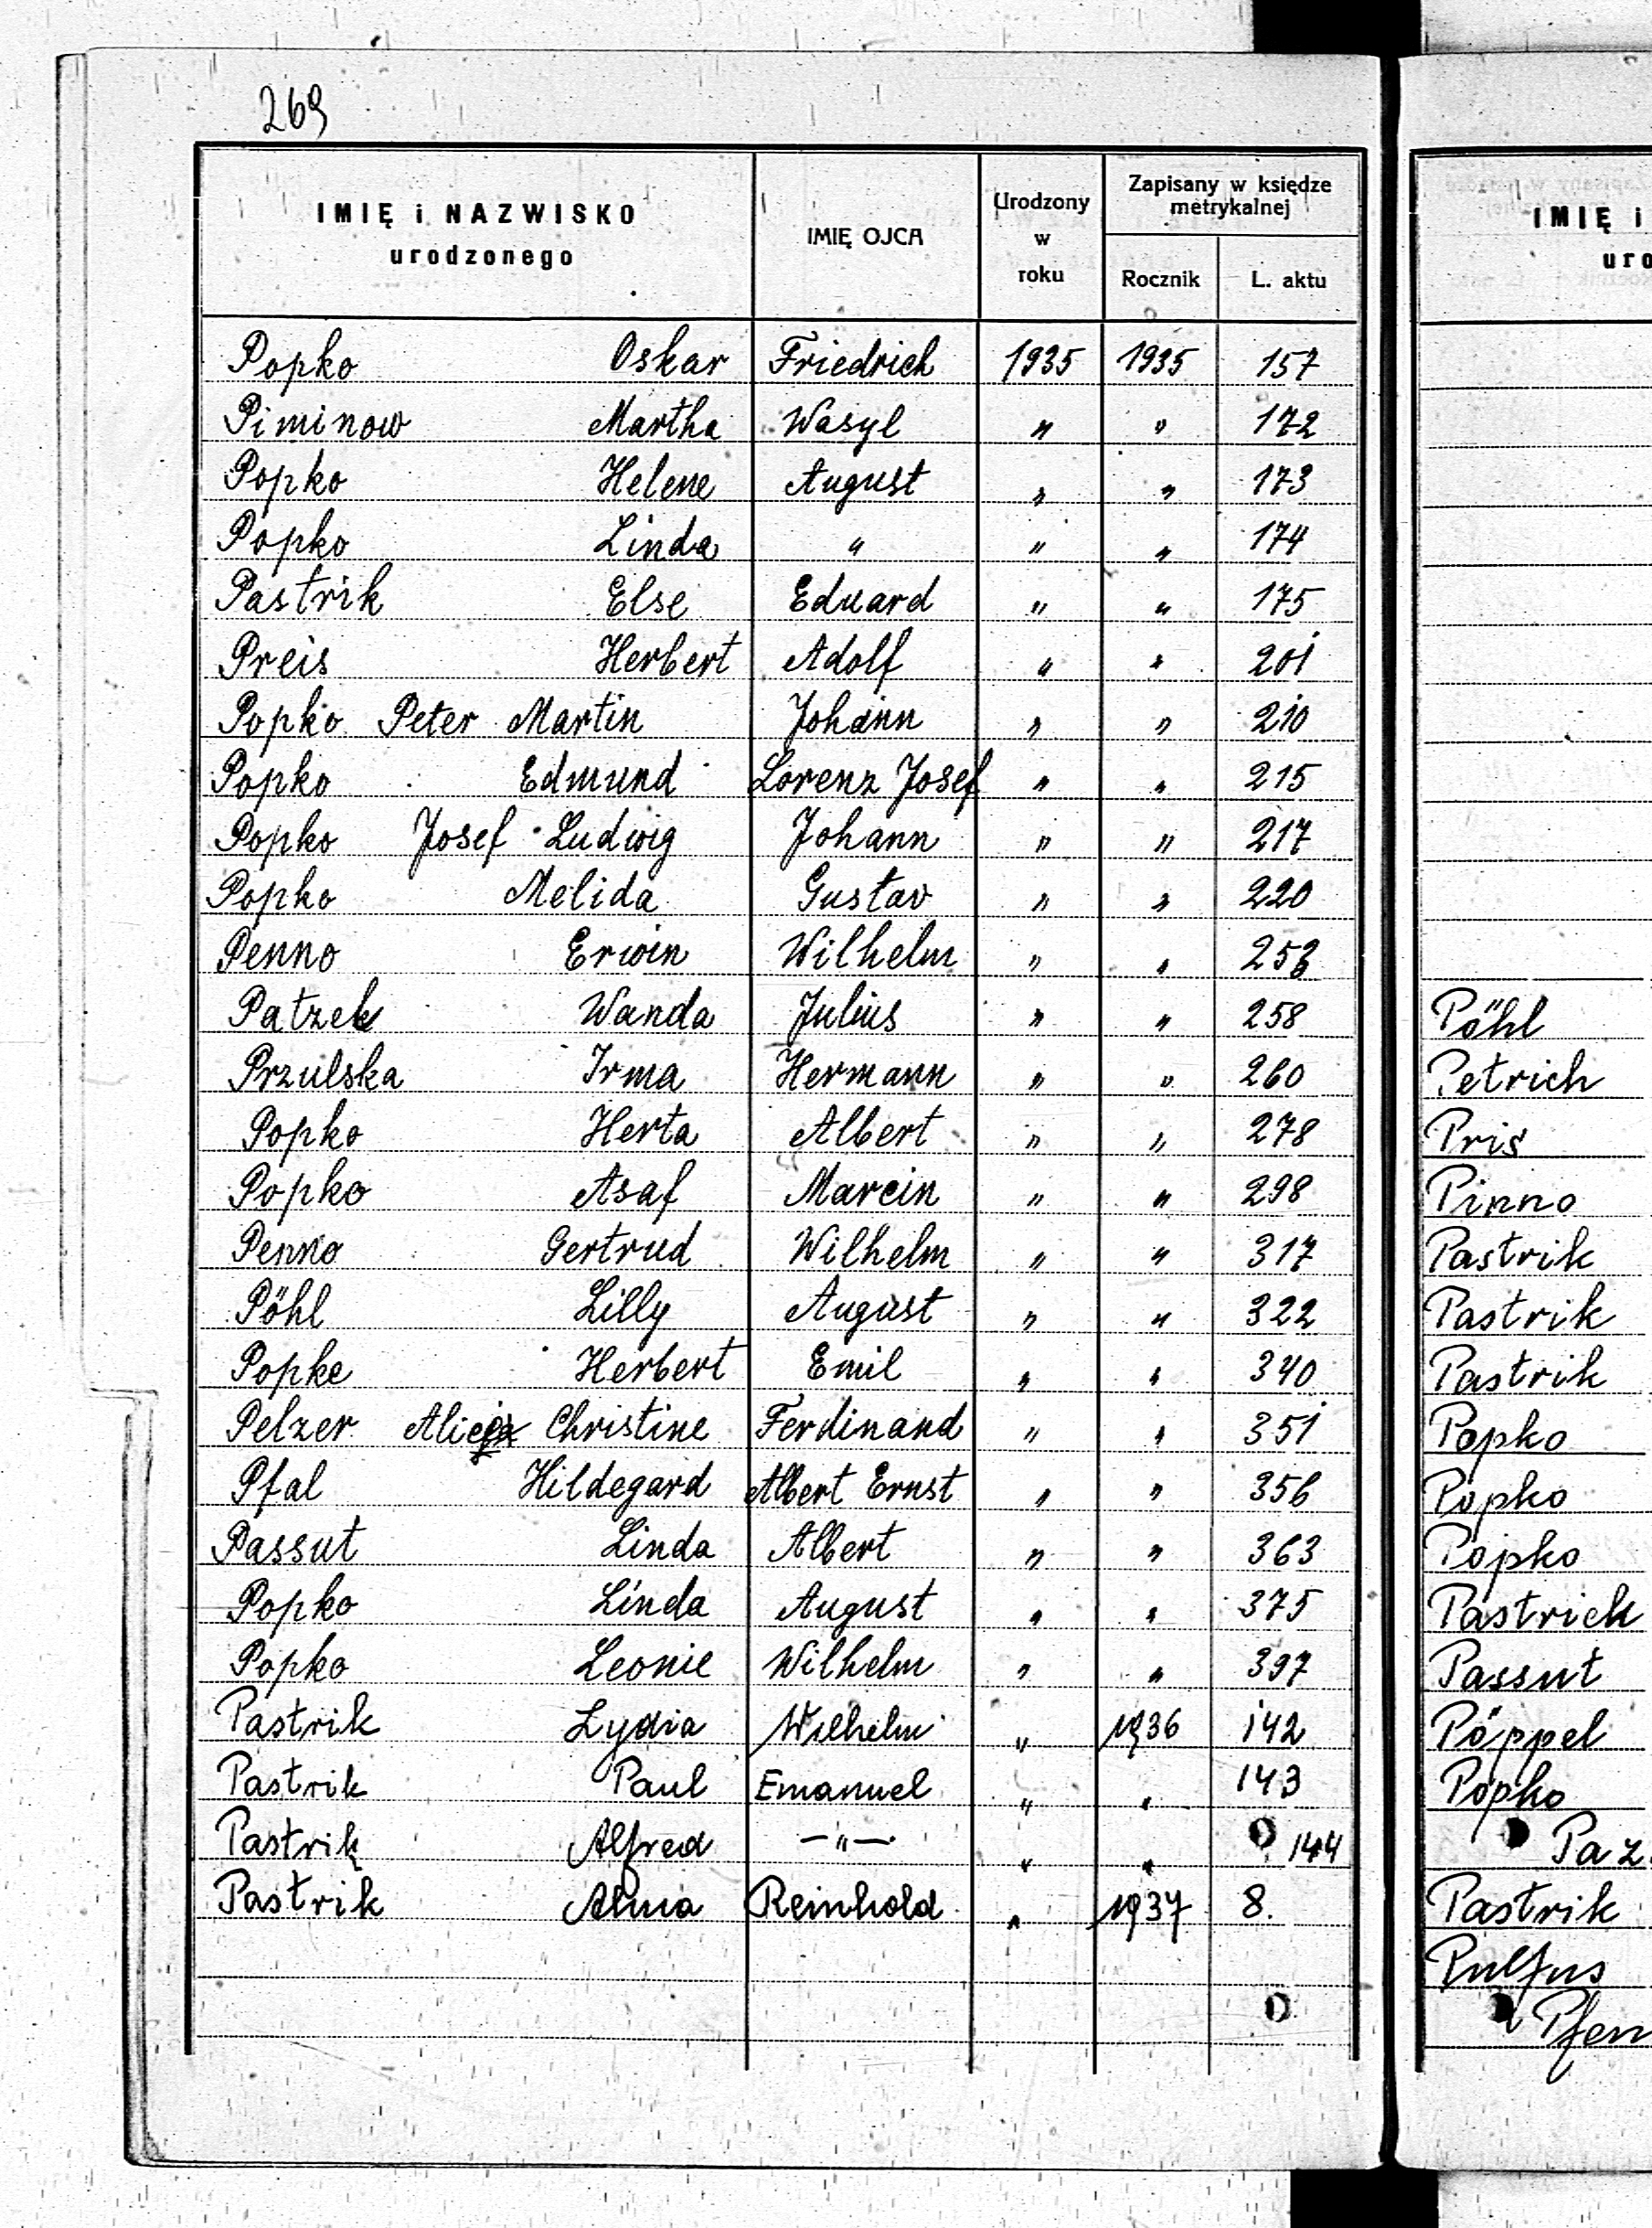 269
IMIĘ i NAZWISKO urodzonego | IMIĘ OJCA | Urodzony w roku | Zapisany w księdze metrykalnej
Rocznik | L. aktu
Popko Oskar Friedrich 1935 1935 157
Piminow Martha Wasyl " " 172
Popko Helene August " " 173
Popko Linda " " " 174
Pastrik Else Eduard " " 175
Preis Herbert Adolf " " 201
Popko Peter Martin Johann " " 210
Popko Edmund Lorenz Josef " " 215
Popko Josef Ludwig Johann " " 217
Popko Melida Gustav " " 220
Penno Erwin Wilhelm " " 253
Patzek Wanda Julius " " 258
Przulska Irma Hermann " " 260
Popko Herta Albert " " 278
Popko Asaf Marcin " " 298
Penno Gertrud Wilhelm " " 317
Pöhl Lilly August " " 322
Popke Herbert Emil " " 340
Pelzer Christine Ferdinand " " 351
Pfal Hildegard Albert Ernst " " 356
Passut Linda Albert " " 363
Popko Linda August " " 375
Popko Leonie Wilhelm " " 397
Pastrik Lydia Wilhelm " 1936 142
Pastrik Paul Emanuel " " 143
Pastrik Alfred —"— " " 144
Pastrik Alma Reinhold " 1937 8.
IMIĘ i
uro
Pöhl
Petrich
Pris
Pinno
Pastrik
Pastrik
Pastrik
Popko
Popko
Popko
Pastrick
Passut
Pöppel
Popko
Paz
Pastrik
Pulfus
Pfen